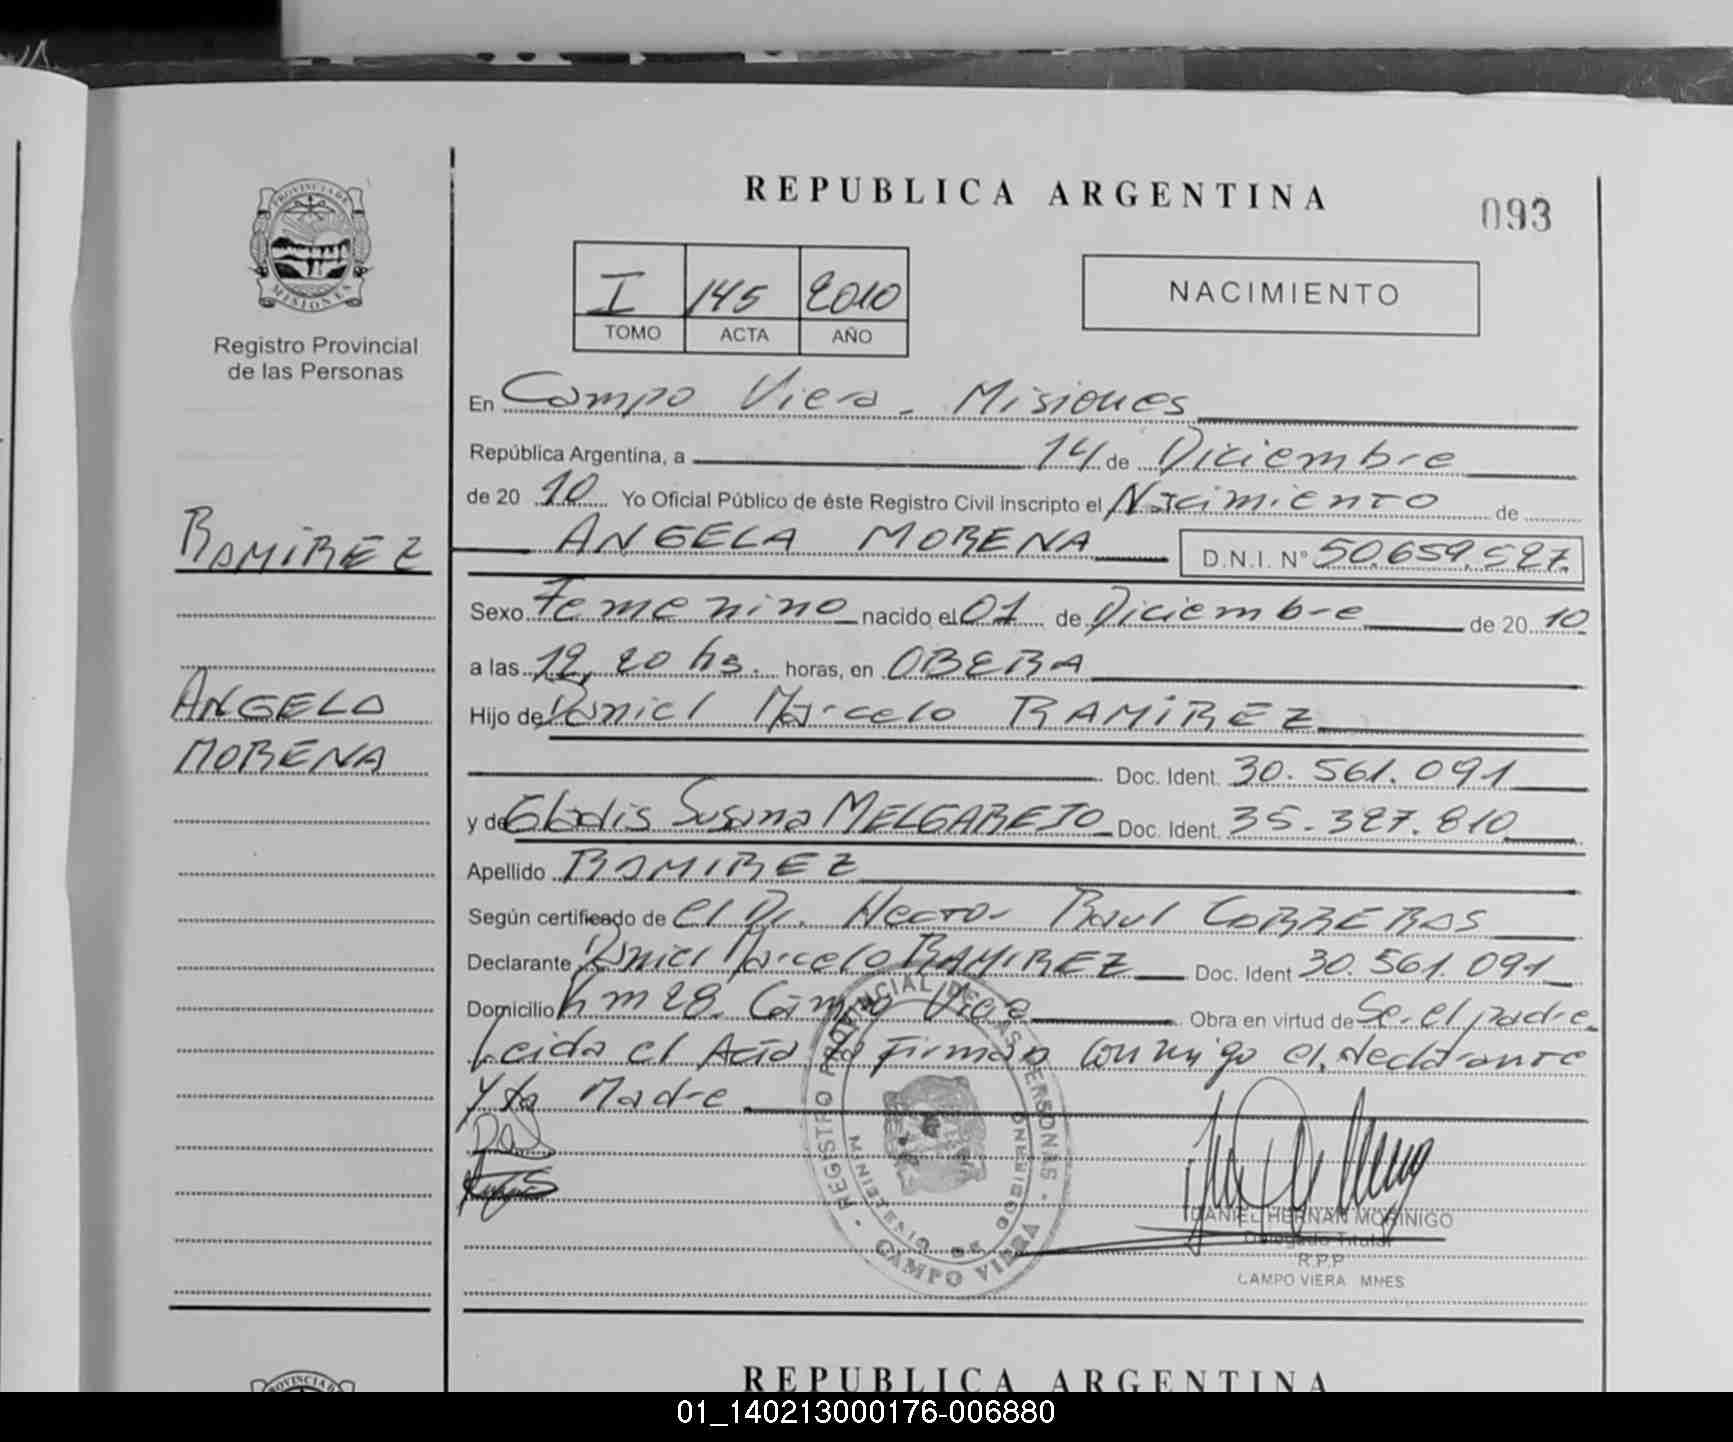 REPUBLICA ARGENTINA
093
PROVINCIA DE
MISIONES
Registro Provincial
de las Personas
I 145 2010
TOMO ACTA AÑO
NACIMIENTO
RAMIREZ
ANGELA
MORENA
En Campo Viera. Misiones
República Argentina, a 14 de Diciembre
de 20 10 Yo Oficial Público de éste Registro Civil inscripto el Nacimiento de
ANGELA MORENA D.N.I. N° 50.659.527.
Sexo Femenino nacido el 01 de Diciembre de 20 10
a las 12,20 hs. horas, en OBERA
Hijo de Daniel Marcelo RAMIREZ
Doc. Ident. 30.561.091
y de Gladis Susana MELGAREJO Doc. Ident. 35.327.810
Apellido RAMIREZ
Según certificado de el Dr. Hector Raul CORRERAS
Declarante Daniel Marcelo RAMIREZ Doc. Ident 30.561.091
Domicilio Km 28. Campo Viera Obra en virtud de Ser el padre
Leida el Acta la Firman conmigo el declarante
y la Madre
REGISTRO PROVINCIAL DE LAS PERSONAS
MINISTERIO DE GOBIERNO
CAMPO VIERA
DANIEL HERNAN MORINIGO
Delegado Titular
R.P.P
CAMPO VIERA MNES
REPUBLICA ARGENTINA
01_140213000176-006880